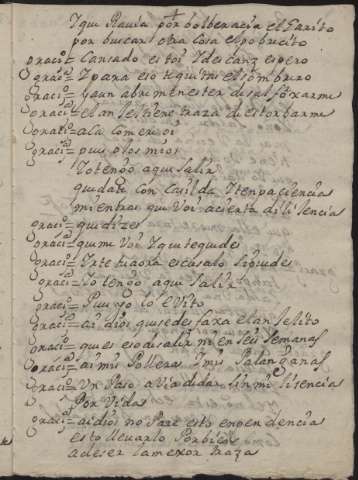 Y qui Rauia por bolberacia el Garito
por buscar otra Cosa el pobrecito
graciᵒ= Cansado estoi Y descanz espero
graciᵃ= Y para eso te quitas el sombrero
graciᵒ= Y aun abre menester desalfoxarme
graciᵃ= el anjel tiene traza de estorbarme
graciᵒ= a la come voi
graciᵃ= pues Dlos mios
Yo tengo aqui salir
quedate con Casilda Y ten paciencia
mientras que Voi a cierta dilijencia
graciᵒ= que dizes
graciᵃ= que me voi Y que te quedes
graciᵒ= Yrte tu aora es casalo si puedes
graciᵃ= Yo tengo aqui salir
graciᵒ= Pues no lo evito
graciᵃ= ai dios que se desfaxa el anjelito
graciᵒ= que es eso de salir ni en seis semanas
graciᵃ= ai mis Polleras Y mis Palanganas
graciᵒ= Vn Paso a Via de dar sin mi lisencia
Por Vida
graciᵃ= ai dios no Pare esto en pendencia
esto lleuarlo Por bien
a de ser la mexor traza